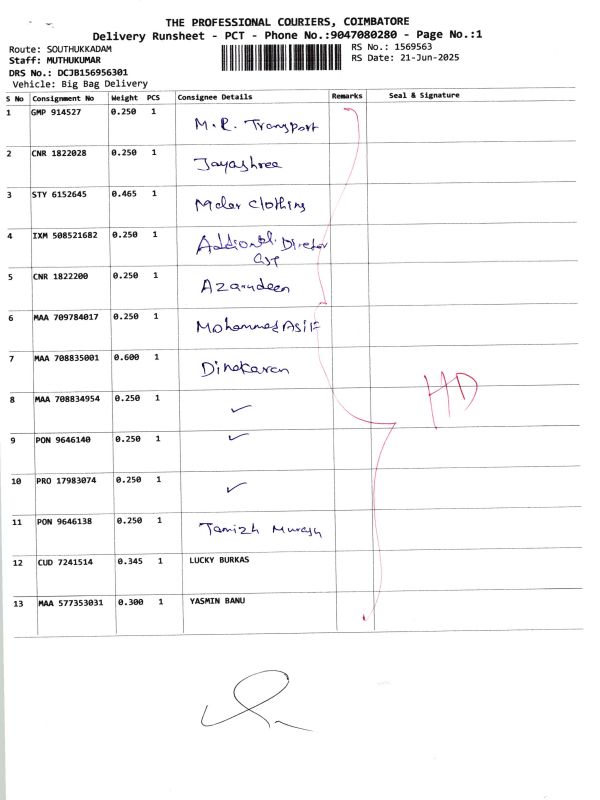 THE PROFESSIONAL COURIERS, COIMBATORE
Delivery Runsheet - PCT - Phone No.:9047080280 - Page No.:1
Route: SOUTHUKKADAM
RS No.: 1569563
Staff: MUTHUKUMAR
RS Date: 21-Jun-2025
DRS No.: DCJB156956301
Vehicle: Big Bag Delivery
S No Consignment No Weight PCS Consignee Details Remarks Seal & Signature
1 GMP 914527 0.250 1 M.R. Transport
2 CNR 1822028 0.250 1 Jayashree
3 STY 6152645 0.465 1 Malar Clothing
4 IXM 508521682 0.250 1 Addional. Director
GST
5 CNR 1822200 0.250 1 Azarudeen
6 MAA 709784017 0.250 1 Mohammed Asif
7 MAA 708835001 0.600 1 Dinakaran
8 MAA 708834954 0.250 1 ✓
HD
9 PON 9646140 0.250 1 ✓
10 PRO 17983074 0.250 1 ✓
11 PON 9646138 0.250 1 Tamizh Murasu
12 CUD 7241514 0.345 1 LUCKY BURKAS
13 MAA 577353031 0.300 1 YASMIN BANU